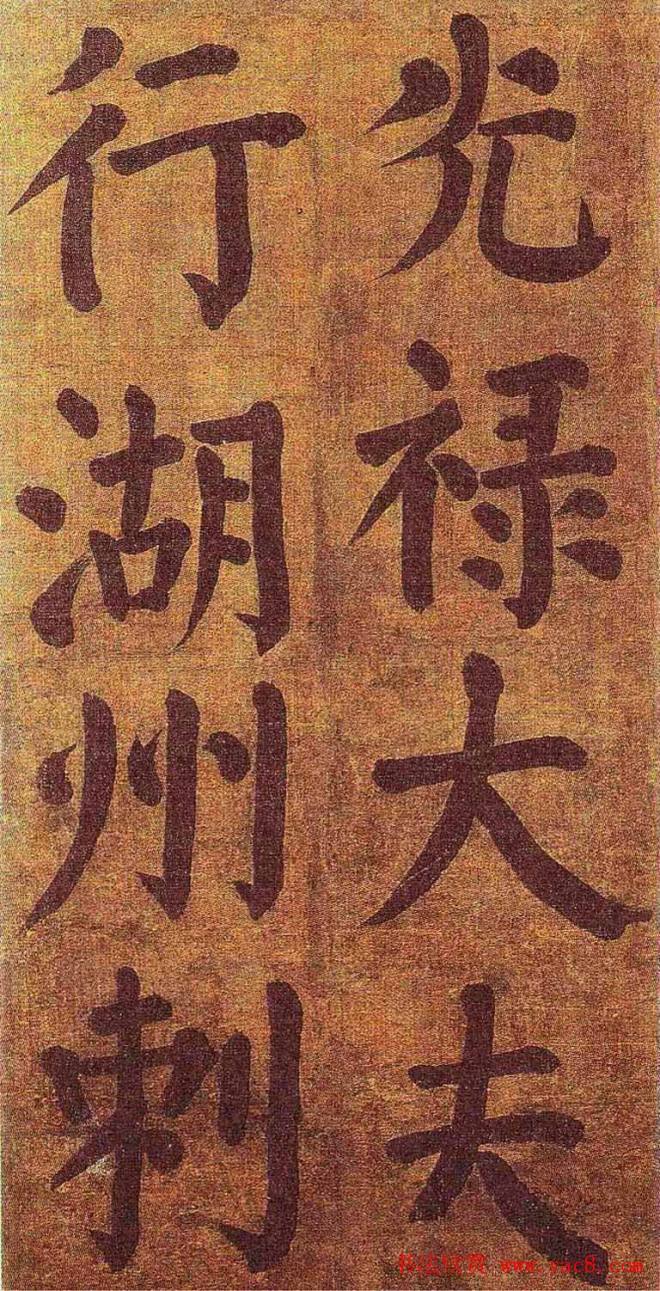 光禄大夫
行湖州刺
书法欣赏 www.yac8.com